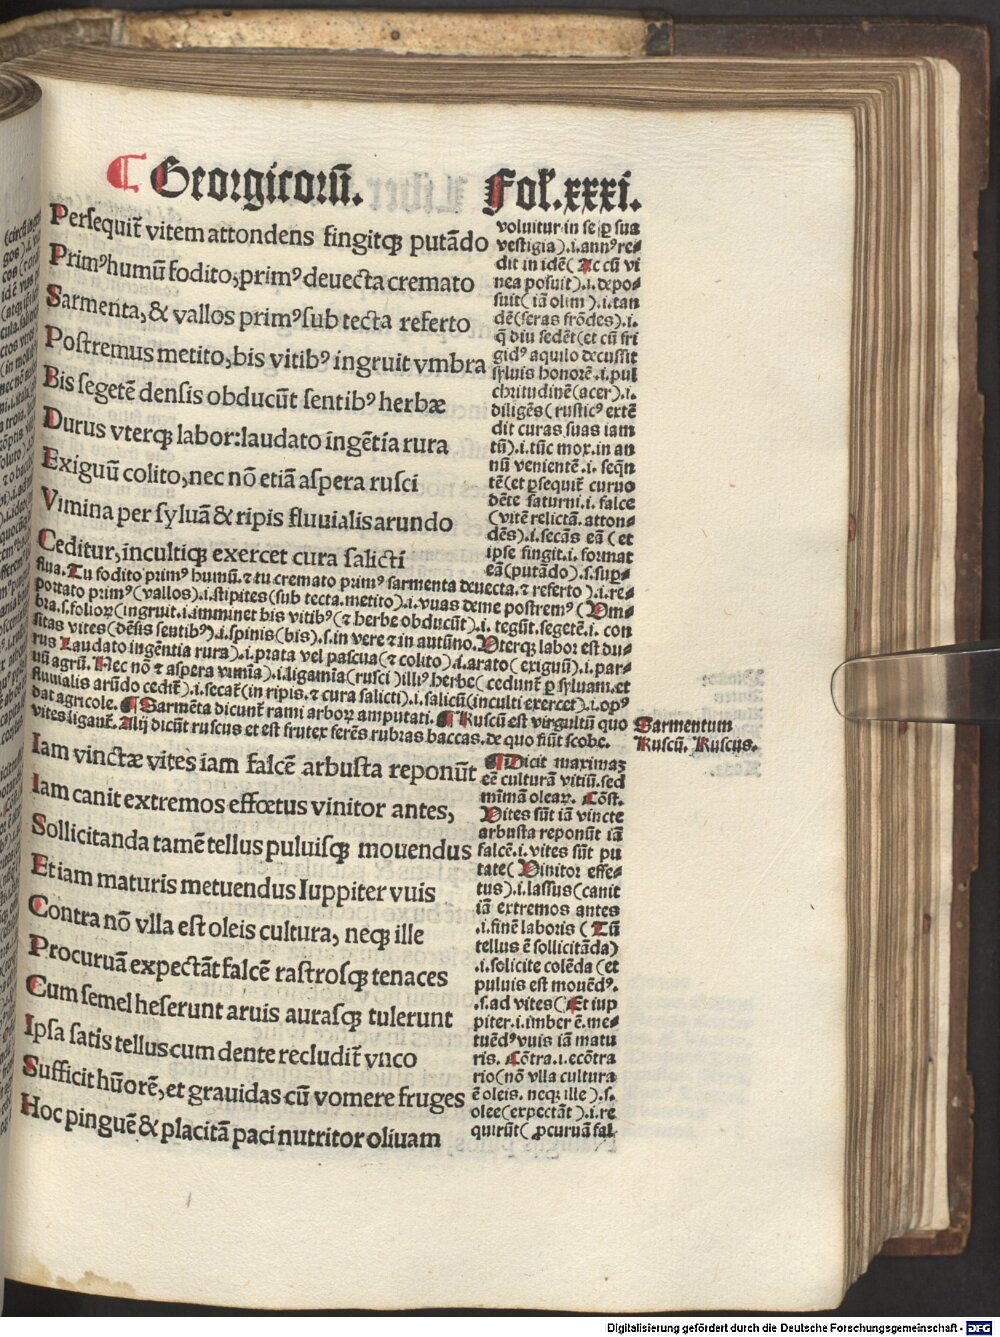 ¶ Georgicorū. Fol. xxxi.
Persequit̄ vitem attondens fingitq̃ putādo
Primꝰ humū fodito, primꝰ deuecta cremato
Sarmenta, & vallos primꝰ sub tecta referto
Postremus metito, bis vitibꝰ ingruit vmbra
Bis segetē densis obducūt sentibꝰ herbæ
Durus vterq̃ labor: laudato ingētia rura
Exiguū colito, nec nō etiā aspera rusci
Vimina per syluā & ripis fluuialis arundo
Ceditur, incultiq̃ exercet cura salicti
voluitur in se ꝑ sua
vestigia).i. annꝰ re-
dit in idē( Ac cū vi
nea posuit).i. depo-
suit( iā olim ).i. tan
dē(seras frōdes).i.
q̄ diu sedēt(et cū fri
gidꝰ aquilo decussit
syluis honorē.i. pul
chritudinē(acer).i.
diligēs( rusticꝰ extē
dit curas suas iam
tū).i. tūc mox. in an
nū venientē.i. seqn̄
tē(et ꝑsequit̄ curuo
dēte saturni.i. falce
(vitē relictā. atton-
dēs).i. secās eā( et
ipse fingit.i. format
eā(putādo).s. sup-
flua. Tu fodito primꝰ humū. ⁊ tu cremato primꝰ sarmenta deuecta. ⁊ referto ).i. re-
portato primꝰ(vallos).i. stipites(sub tecta. metito).i. vuas deme postremꝰ( Vm-
bra.s. folioꝝ(ingruit.i. imminet bis vitibꝰ(⁊ herbe obducūt).i. tegūt. segetē.i. con
sitas vites(dēsis sentibꝰ).i. spinis(bis).s. in vere ⁊ in autūno. Vterq̃ labor est du-
rus Laudato ingētia rura).i. prata vel pascua(⁊ colito).i. arato( exiguū).i. par-
uū agrū. Nec nō ⁊ aspera vimīa).i. ligamīa(rusci )illiꝰ herbe( cedunt̄ ꝑ syluam. et
fluuialis arūdo cedit̄).i. secat̄(in ripis. ⁊ cura salicti).i. salicū(inculti exercet).i. opꝰ
dat agricole. ¶ Sarmēta dicunt̄ rami arboꝝ amputati. ¶ Ruscū est virgultū quo
vites ligant̄. Alij dicūt ruscus et est frutex ferēs rubras baccas. de quo fiūt scobe.
Sarmentum
Ruscū. Ruscus.
Iam vinctæ vites iam falcē arbusta reponūt
Iam canit extremos effœtus vinitor antes,
Sollicitanda tamē tellus puluisq̃ mouendus
Et iam maturis metuendus Iuppiter vuis
Contra nō vlla est oleis cultura, neq̃ ille
Procuruā expectāt falcē rastrosq̃ tenaces
Cum semel heserunt aruis aurasq̃ tulerunt
Ipsa satis tellus cum dente recludit̄ vnco
Sufficit hūorē, et grauidas cū vomere fruges
Hoc pinguē & placitā paci nutritor oliuam
¶ Dicit maximaꝫ
eē culturā vitiū. sed
mīmā oleaꝝ. Cōst.
Vites sūt iā vincte
arbusta reponūt iā
falcē.i. vites sūt pu
tate( Vinitor effe-
tus).i. lassus(canit
iā extremos antes
.i. finē laboris ( Tū
tellus ē sollicitāda)
.i. solicite colēda(et
puluis est mouēdꝰ.
.s. ad vites( Et iup
piter.i. imber ē. me-
tuēdꝰ vuis iā matu
ris. Cōtra.i. ecōtra
rio(nō vlla cultura
ē oleis. neq̃ ille ).s.
olee(expectāt ).i. re
quirūt( ꝓcuruā fal
Digitalisierung gefördert durch die Deutsche Forschungsgemeinschaft - DFG